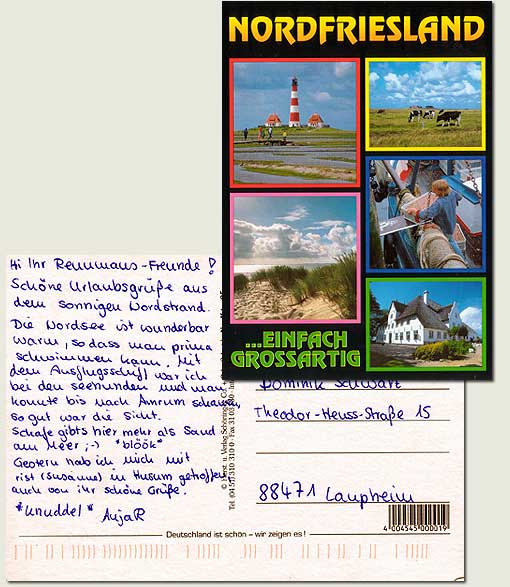 NORDFRIESLAND
...EINFACH
GROSSARTIG
Hi Ihr Rennmaus-Freunde!
Schöne Urlaubsgrüße aus
dem sonnigen Nordstrand.
Die Nordsee ist wunderbar
warm, so dass man prima
schwimmen kann. Mit
dem Ausflugsschiff war ich
bei den Seehunden und man
konnte bis nach Amrum schauen,
so gut war die Sicht.
Schafe gibts hier mehr als Sand
am Meer ;-) *blöök*
Gestern hab ich mich mit
(Susanne) in Husum getroffen,
auch von ihr schöne Grüße.
*knuddel* AnjaR
Dominik Schwarz
Theodor-Heuss-Straße 15
88471 Laupheim
4 004545 000019
Deutschland ist schön – wir zeigen es!